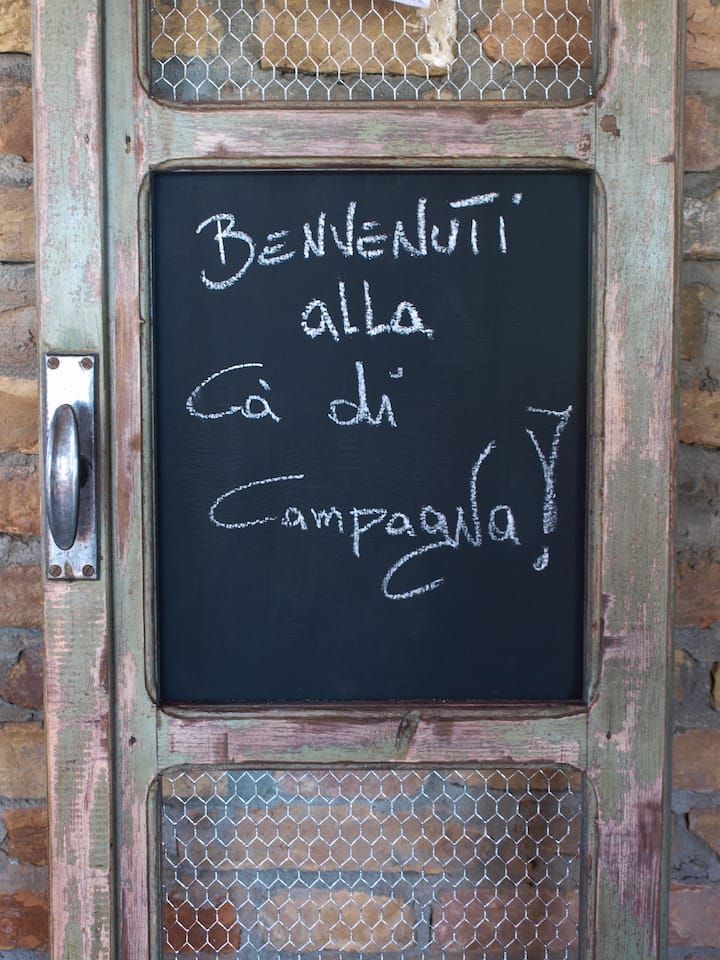 BENVENUTI
alla
Cà di
Campagna!